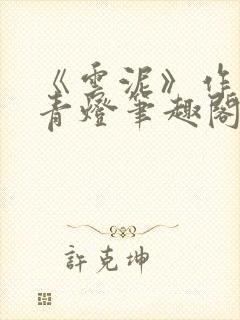 《雲泥》作
青燈筆趣閣
許克坤